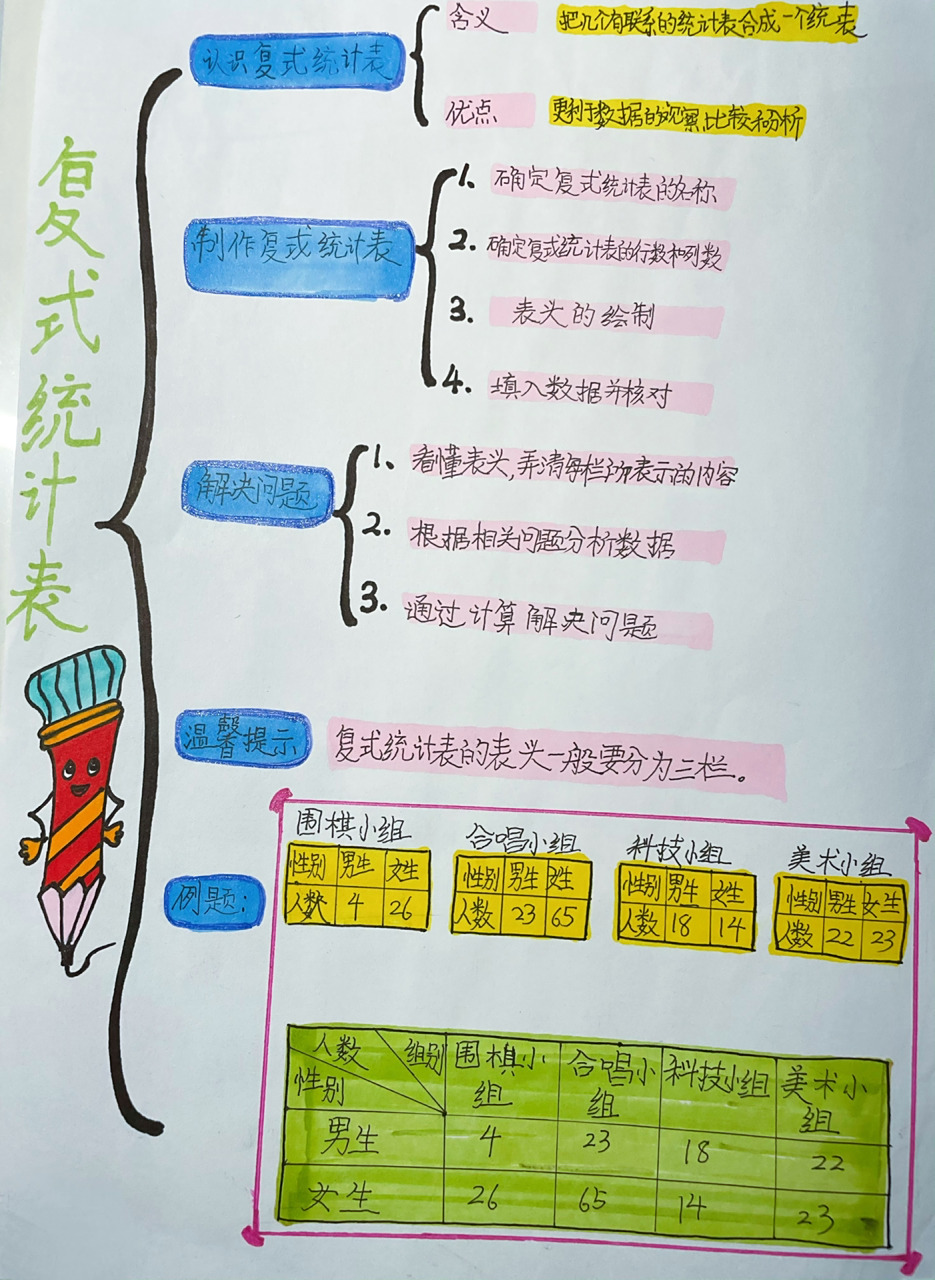 复式统计表
认识复式统计表
含义
把几个有联系的统计表合成一个统表
优点
更利于数据的观察,比较和分析
制作复式统计表
1. 确定复式统计表的名称
2. 确定复式统计表的行数和列数
3. 表头的绘制
4. 填入数据并核对
解决问题
1. 看懂表头,弄清每栏所表示的内容
2. 根据相关问题分析数据
3. 通过计算解决问题
温馨提示
复式统计表的表头一般要分为三栏。
例题:
围棋小组
性别 男生 女生
人数 4 26
合唱小组
性别 男生 女生
人数 23 65
科技小组
性别 男生 女生
人数 18 14
美术小组
性别 男生 女生
人数 22 23
人数 组别 围棋小 合唱小 科技小组 美术小
性别 组 组 组
男生 4 23 18 22
女生 26 65 14 23